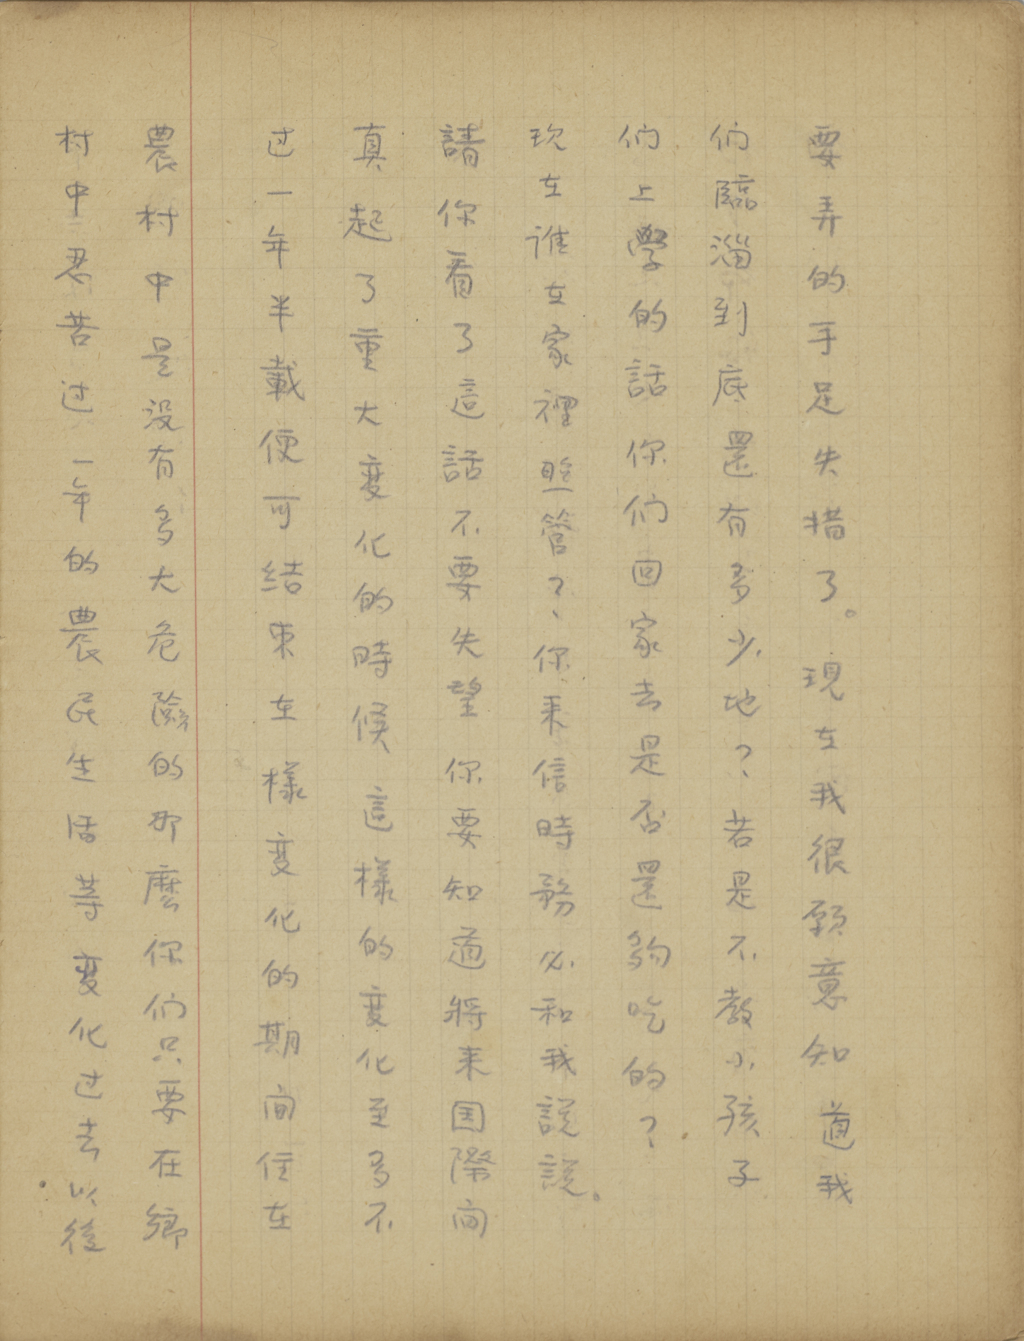 要弄的手足失措了。現在我很願意知道我
们臨淄到底還有多少地？若是不教小孩子
们上學的話你们回家去是否還夠吃的？
玫在谁在家裡照管？你来信時務必和我説説。
請你看了這話不要失望你要知道將来国際间
真起了重大変化的時候這樣的変化至多不
过一年半載便可结束在樣变化的期间住在
農村中是没有多大危險的那麽你们只要在鄉
村中忍苦过一年的農民生活等变化过去以後